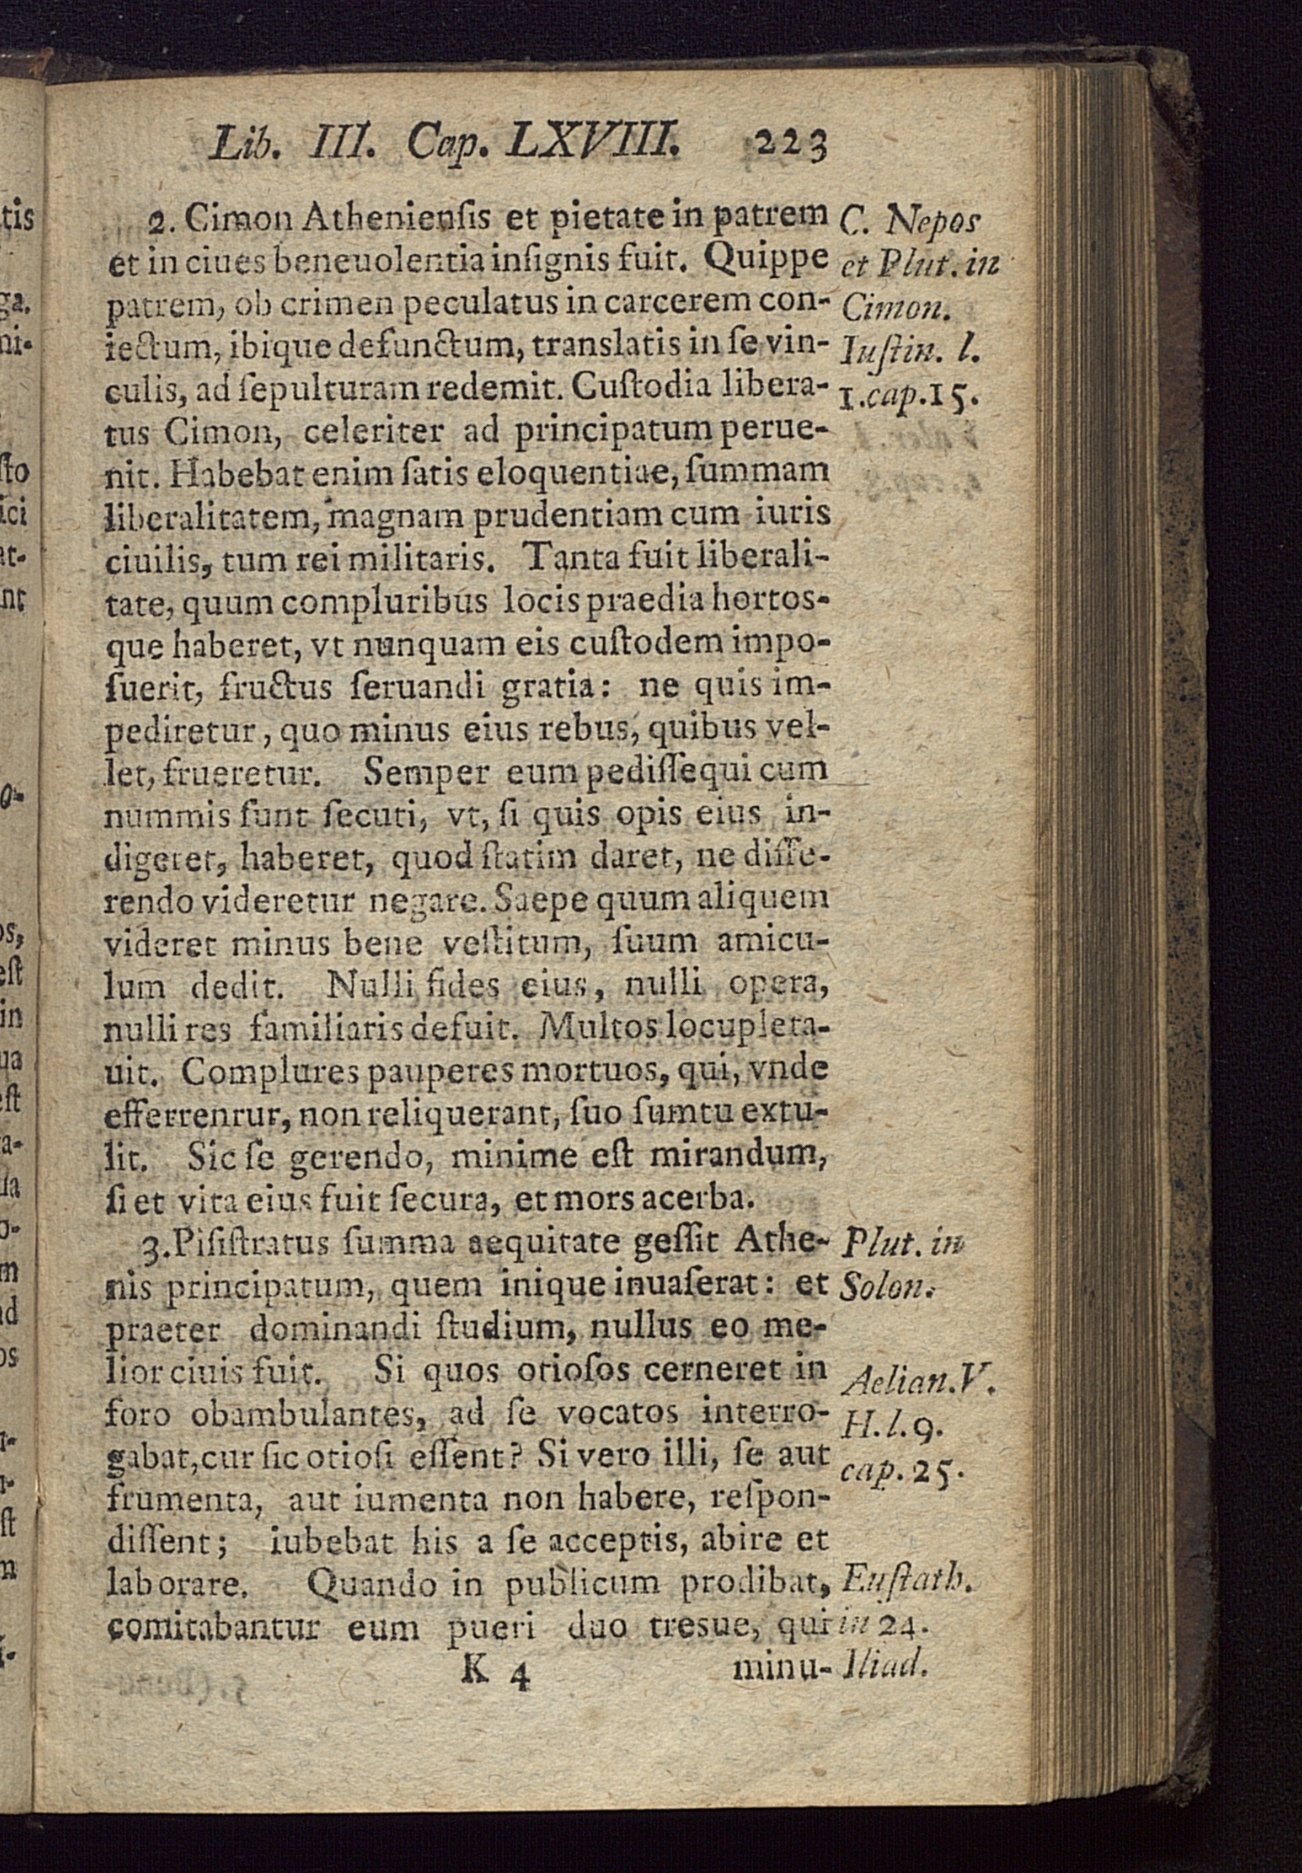 Lib. III. Cap. LXVIII. 223
2. Cimon Athenienſis et pietate in patrem
et in ciues beneuolentia inſignis fuit. Quippe
patrem, ob crimen peculatus in carcerem con-
iectum, ibique defunctum, translatis in ſe vin-
culis, ad ſepulturam redemit. Cuſtodia libera-
tus Cimon, celeriter ad principatum perue-
nit. Habebat enim ſatis eloquentiae, ſummam
liberalitatem, magnam prudentiam cum iuris
ciuilis, tum rei militaris. Tanta fuit liberali-
tate, quum compluribus locis praedia hortos-
que haberet, vt nunquam eis cuſtodem impo-
ſuerit, fructus ſeruandi gratia: ne quis im-
pediretur, quo minus eius rebus, quibus vel-
let, frueretur. Semper eum pediſſequi cum
nummis ſunt ſecuti, vt, ſi quis opis eius in-
digeret, haberet, quod ſtatim daret, ne diffe-
rendo videretur negare. Saepe quum aliquem
videret minus bene veſtitum, ſuum amicu-
lum dedit. Nulli fides eius, nulli opera,
nulli res familiaris defuit. Multos locupleta-
uit. Complures pauperes mortuos, qui, vnde
efferrenrur, non reliquerant, ſuo ſumtu extu-
lit. Sic ſe gerendo, minime eſt mirandum,
ſi et vita eius fuit ſecura, et mors acerba.
3. Piſiſtratus ſumma aequitate geſſit Athe-
nis principatum, quem inique inuaſerat: et
praeter dominandi ſtudium, nullus eo me-
lior ciuis fuit. Si quos otioſos cerneret in
foro obambulantes, ad ſe vocatos interro-
gabat, cur ſic otioſi eſſent? Si vero illi, ſe aut
frumenta, aut iumenta non habere, reſpon-
diſſent; iubebat his a ſe acceptis, abire et
laborare. Quando in publicum prodibat,
comitabantur eum pueri duo tresue, qui
K 4 minu-
C. Nepos
et Plut. in
Cimon.
Iuſtin. l.
1. cap. 15.
Plut. in
Solon.
Aelian. V.
H. l. 9.
cap. 25.
Euſtath.
in 24.
Iliad.